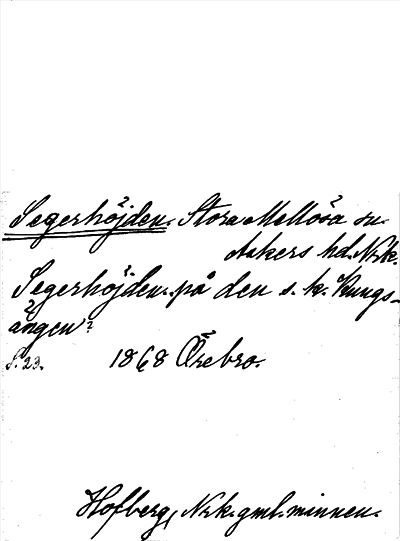 Segerhöjden. Stora Mellösa sn.
Askers hd. Nrk.
Segerhöjden. på den s. k. Kungs-
ängen?
S. 23. 1868 Örebro.
Hofberg, Nrk. gml. minnen.